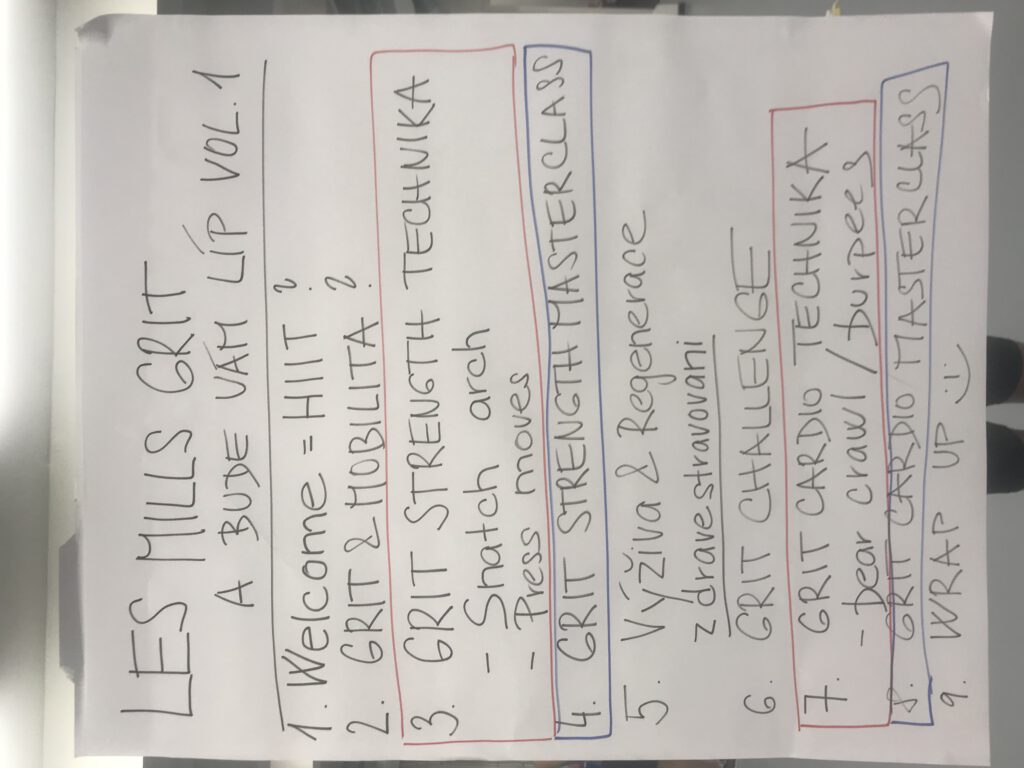 LES MILLS GRIT
A BUDE VÁM LÍP VOL. 1
1. Welcome = HIIT ?
2. GRIT & MOBILITA ?
3. GRIT STRENGTH TECHNIKA
- Snatch arch
- Press moves
4. GRIT STRENGTH MASTERCLASS
5. Výživa & Regenerace
zdravestravovani
6. GRIT CHALLENGE
7. GRIT CARDIO TECHNIKA
- bear crawl / burpees
8. GRIT CARDIO MASTERCLASS
9. WRAP UP :-)